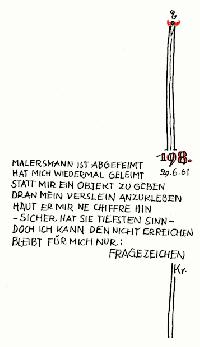 ?
198.
29.6.61
MALERSMANN IST ABGEFEIMT
HAT MICH WIEDERMAL GELEIMT
STATT MIR EIN OBJEKT ZU GEBEN
DRAN MEIN VERSLEIN ANZUKLEBEN
HAUT ER MIR NE CHIFFRE HIN
- SICHER, HAT SIE TIEFSTEN SINN -
DOCH ICH KANN DEN NICHT ERREICHEN
BLEIBT FÜR MICH NUR:
FRAGEZEICHEN
Kr.